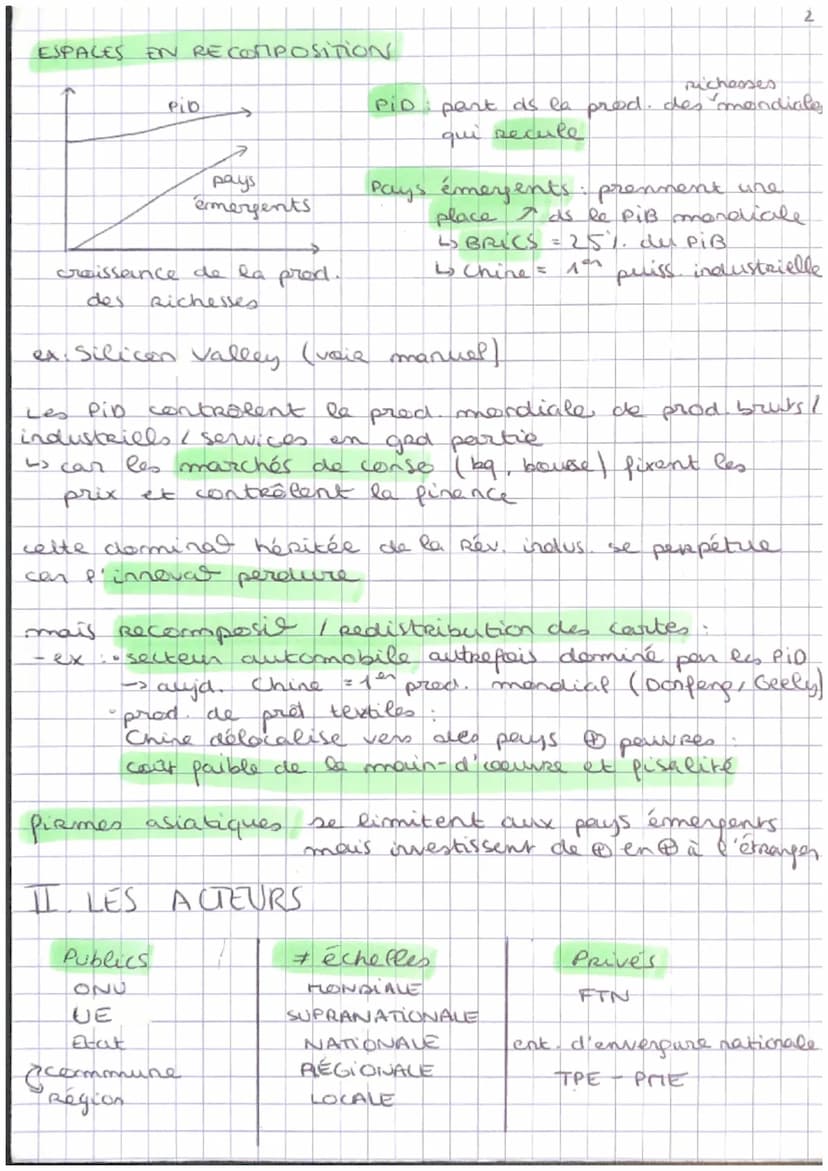 2
ESPACES EN RECOMPOSITION
PiD
pays
émergents
croissance de la prod.
des richesses
richesses
PiD : part ds la prod. des mondiales
qui recule
Pays émergents : prennent une
place ↗ ds le PiB mondiale
↳ BRICS = 25% du PiB
↳ Chine = 1er puiss. industrielle
ex: Silicon Valley (voir manuel)
Les PiD contrôlent la prod. mondiale de prod. bruts /
industriels / services en grd partie
↳ car les marchés de conso (bq, bourse) fixent les
prix et contrôlent la finance
cette dominat° héritée de la Rév. indus. se perpétue
car l'innovat° perdure
mais Recomposit° / redistribution des cartes :
- ex : • secteur automobile autrefois dominé par les PiD
→ aujd. Chine = 1er prod. mondial (Donfeng, Geely)
• prod. de prêt textiles :
Chine délocalise vers des pays ⊕ pauvres :
coût faible de la main-d'œuvre et fisalité
firmes asiatiques se limitent aux pays émergents
mais investissent de ⊕ en ⊕ à l'étranger
II. LES ACTEURS
Publics ≠ échelles Privés
ONU MONDIALE FTN
UE SUPRANATIONALE
Etat NATIONALE ent. d'envergure nationale
commune RÉGIONALE TPE - PME
Région LOCALE